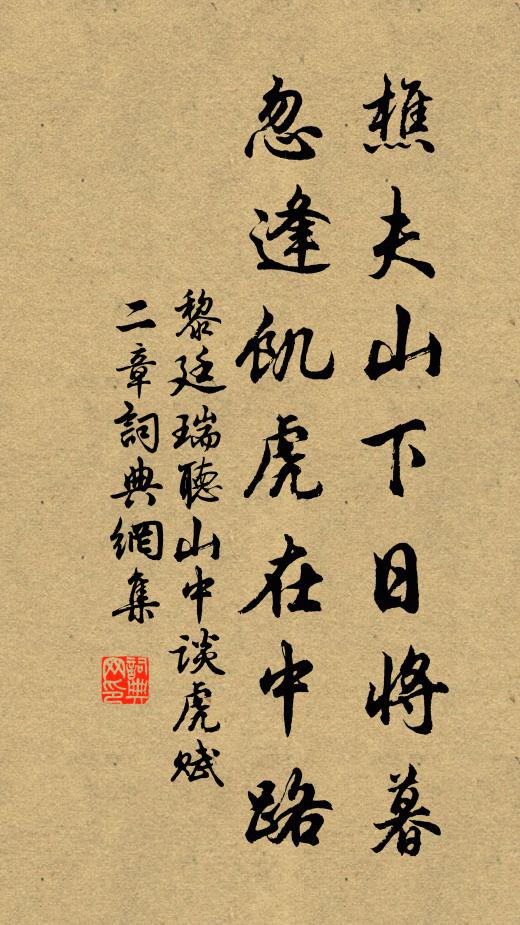 樵夫山下日將暮
忽逢飢虎在中路
黎廷瑞聽山中談虎賦
二章詞典網集
詞典网印